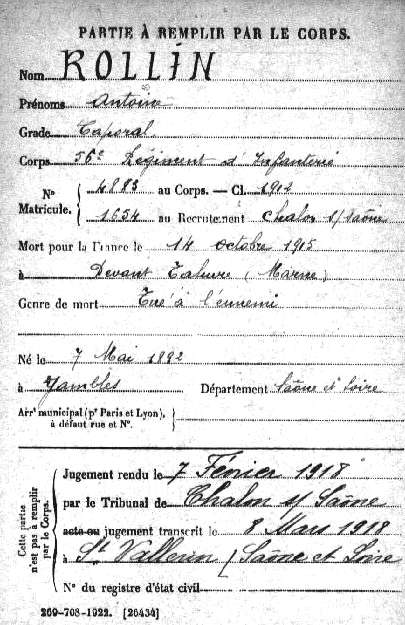 PARTIE À REMPLIR PAR LE CORPS.
Nom ROLLIN
Prénoms Antoine
Grade Caporal
Corps 56e Régiment d'Infanterie
N° Matricule. { 4883 au Corps. — Cl. 1912
1654 au Recrutement Chalon s/ Saône
Mort pour la France le 14 octobre 1915
à Devant Tahure (Marne)
Genre de mort Tué à l'ennemi
Né le 7 Mai 1892
à Jambles Département Saône et Loire
Arrt municipal (pr Paris et Lyon), à défaut rue et N°. }
Cette partie n'est pas à remplir par le Corps. {
Jugement rendu le 7 Février 1918
par le Tribunal de Chalon s/ Saône
acte ou jugement transcrit le 8 Mars 1918
à St Vallerin (Saône et Loire
N° du registre d'état civil
269-708-1922. [26434]